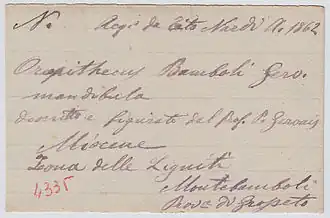 N. Acqis da Tito Nardi A. 1862
Oreopithecus Bamboli Gerv.
mandibola
descritto e figurato dal Prof. P. Gervais
Miocene
Zona delle Ligniti
Montebamboli
Prov.a di Grosseto
4335